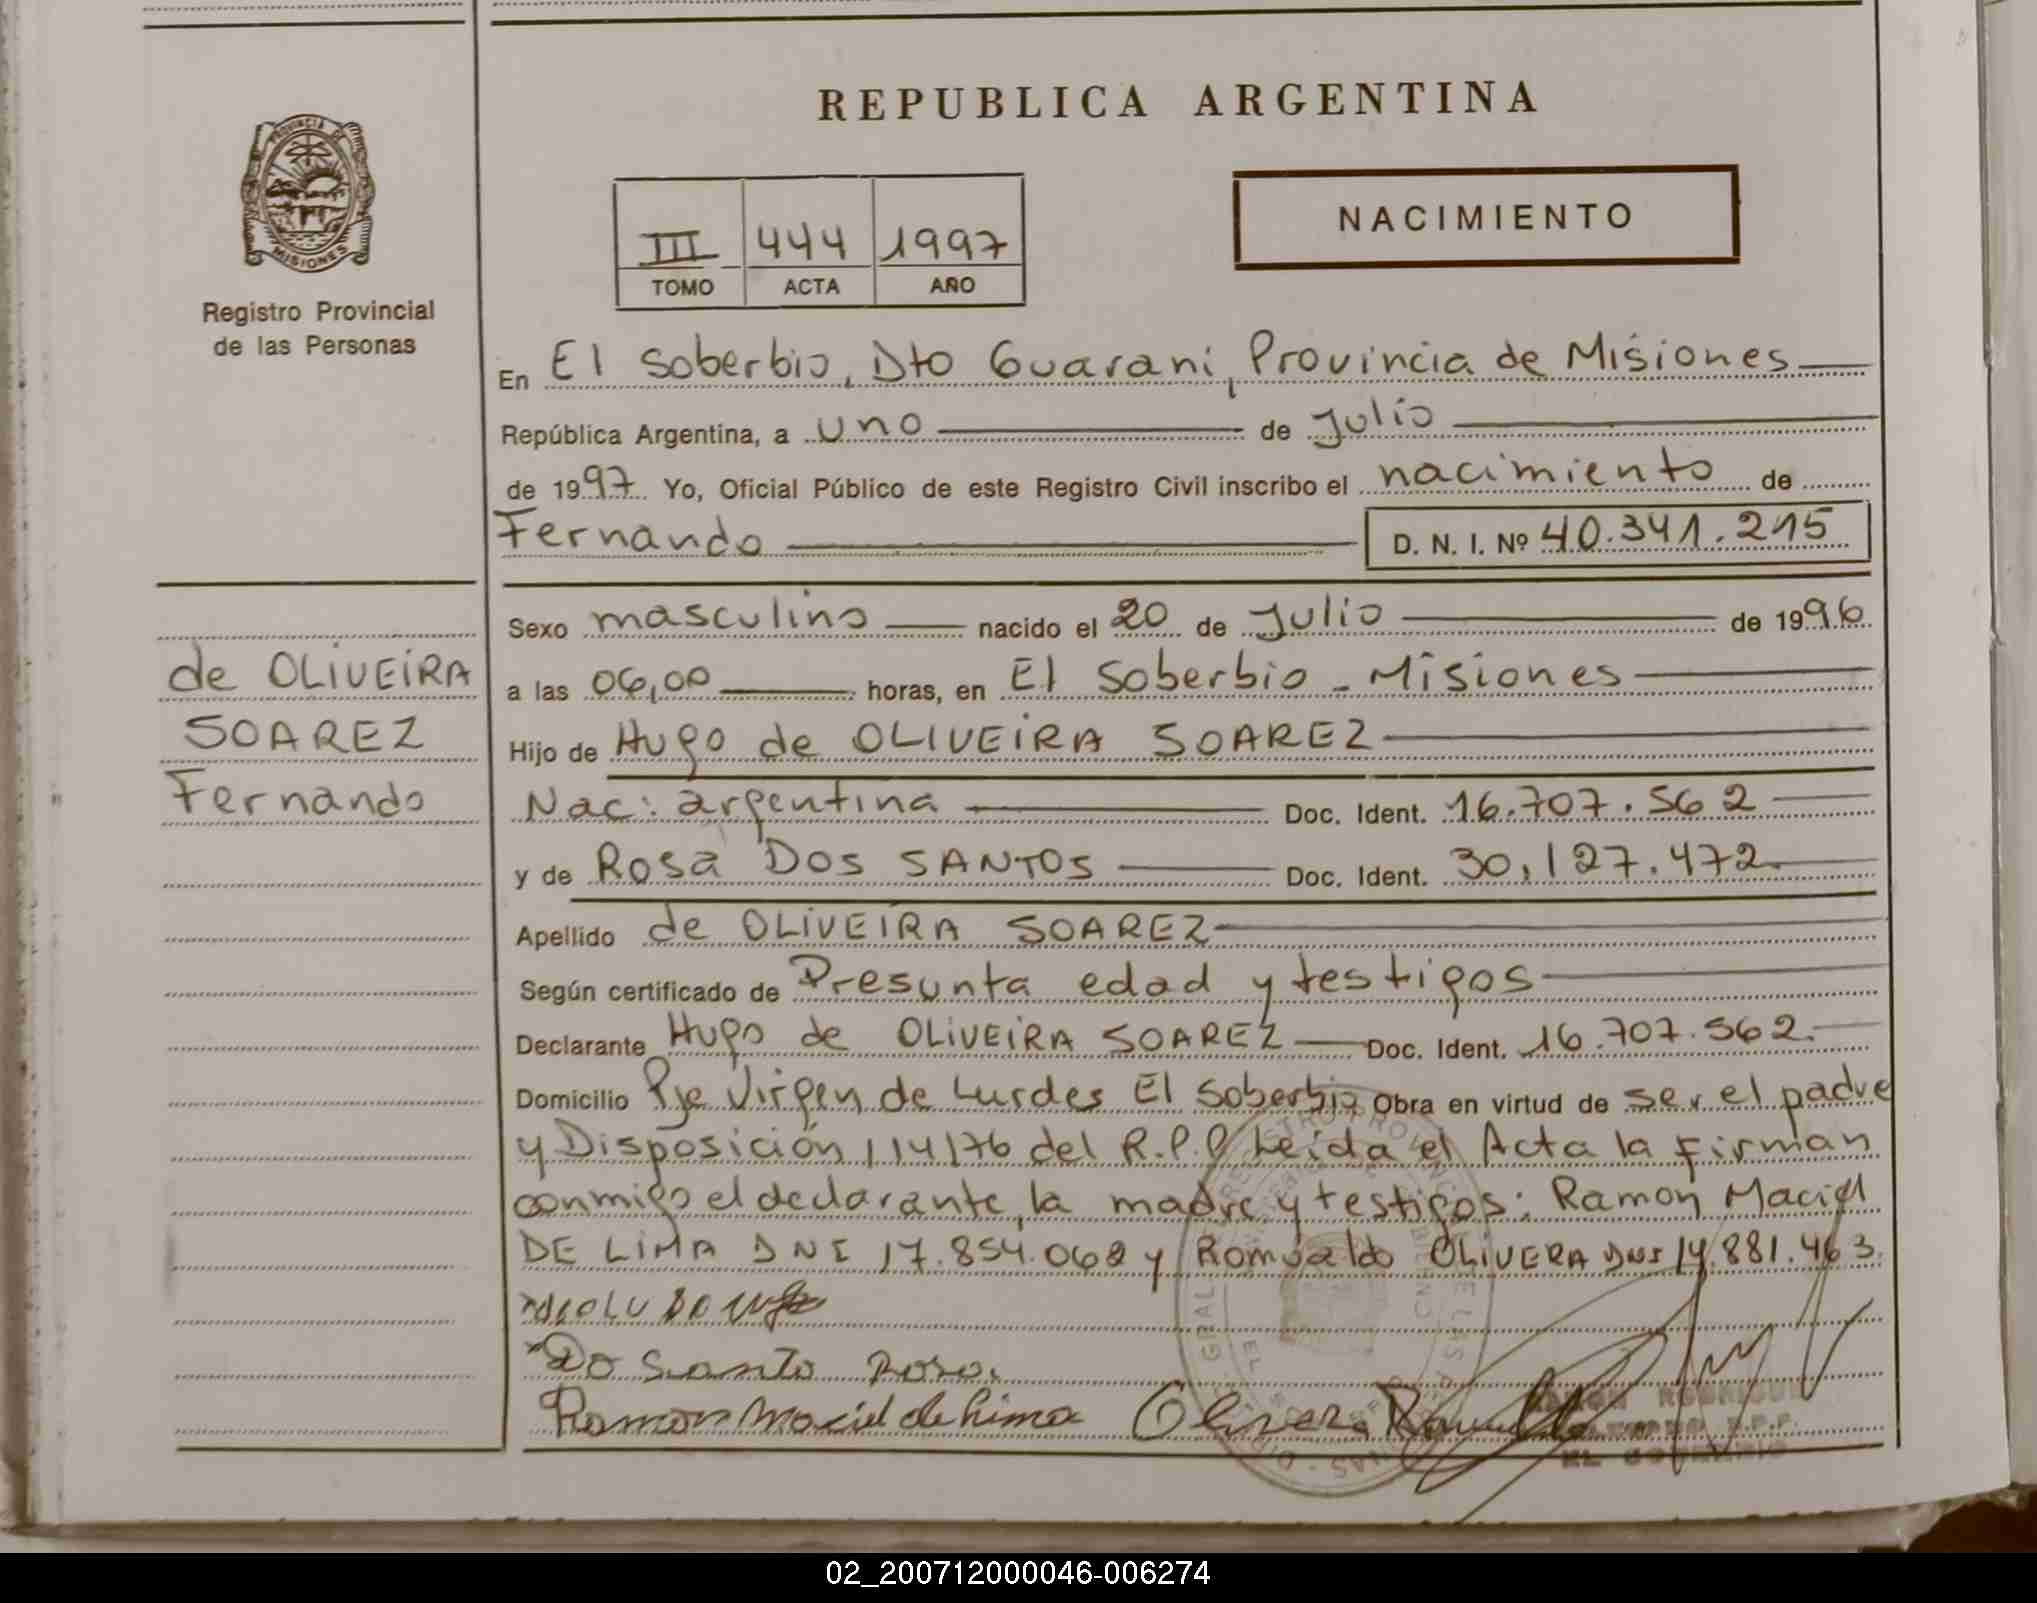 REPUBLICA ARGENTINA
PROVINCIA DE
MISIONES
Registro Provincial
de las Personas
III 444 1997
TOMO ACTA AÑO
NACIMIENTO
En El Soberbio, Dto Guarani, Provincia de Misiones
República Argentina, a uno de Julio
de 1997 Yo, Oficial Público de este Registro Civil inscribo el nacimiento de
Fernando D. N. I. Nº 40.341.215
de OLIVEIRA
SOAREZ
Fernando
Sexo masculino nacido el 20 de Julio de 1996
a las 06,00 horas, en El Soberbio - Misiones
Hijo de Hugo de OLIVEIRA SOAREZ
Nac: argentina Doc. Ident. 16.707.562
y de Rosa DOS SANTOS Doc. Ident. 30,127.472
Apellido de OLIVEIRA SOAREZ
Según certificado de Presunta edad y testigos
Declarante Hugo de OLIVEIRA SOAREZ Doc. Ident. 16.707.562.
Domicilio Pje Virgen de Lurdes El Soberbio Obra en virtud de ser el padre
y Disposición 114/76 del R.P.P Leida el Acta la firman
conmigo el declarante, la madre y testigos: Ramon Maciel
DE LIMA DNI 17.854.068 y Romualdo OLIVERA DNI 14.881.463.
Do Santo Rosa.
Ramon Maciel de Lima Olivera
EL SOBERBIO
02_200712000046-006274